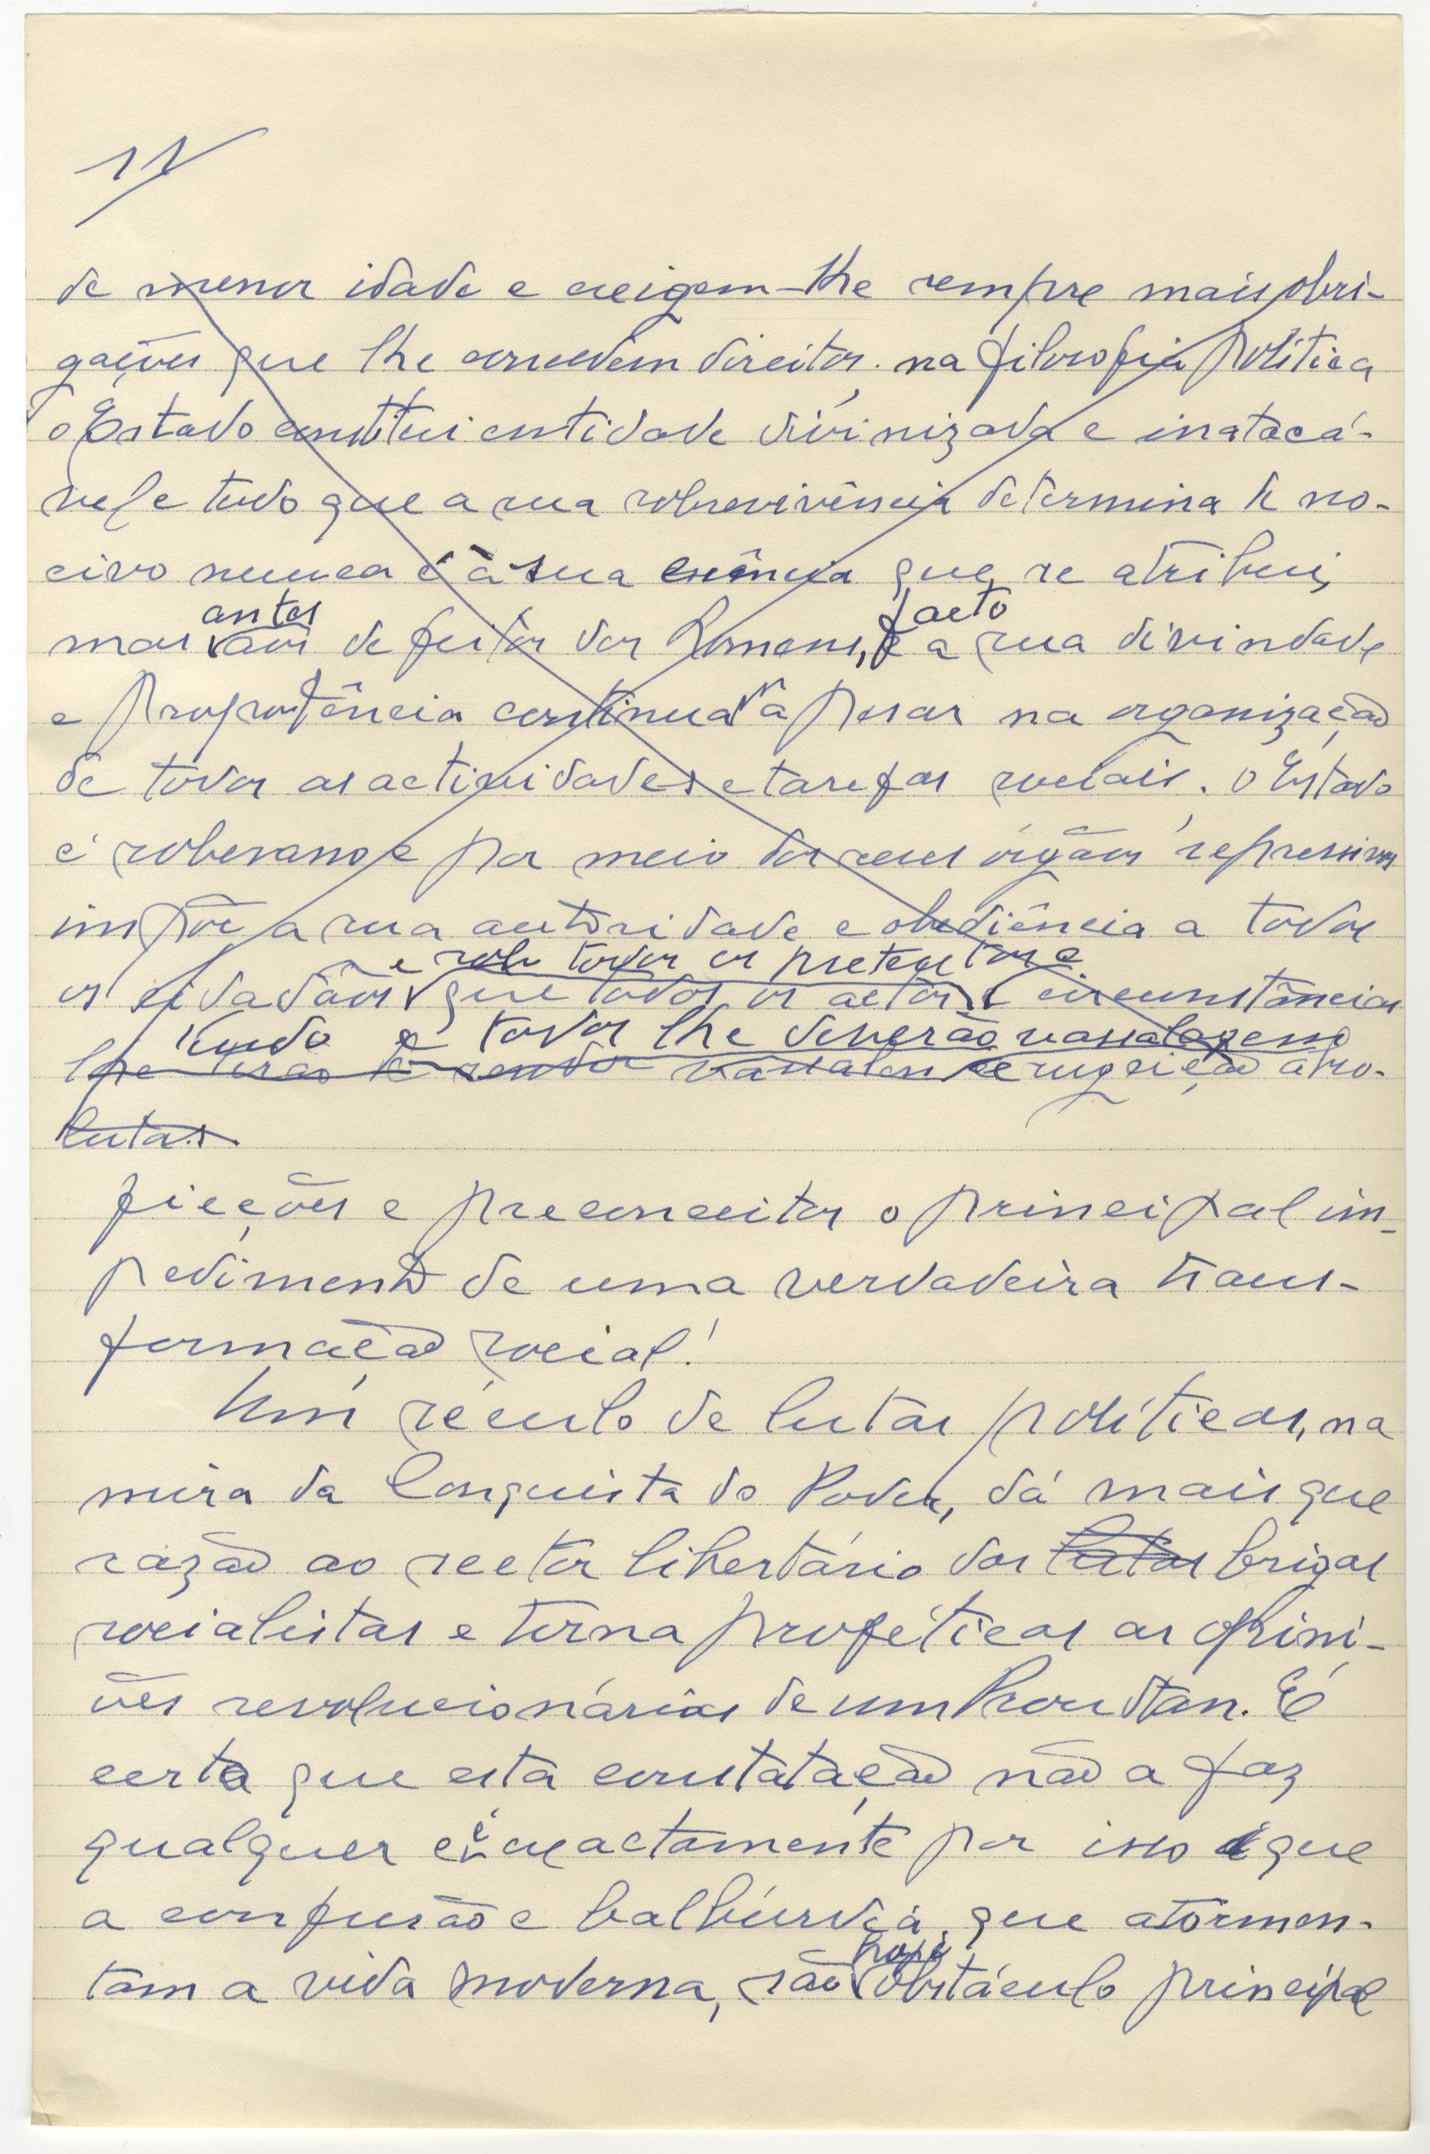 11
de menor idade e exigem-lhe sempre mais obri-
gações que lhe concedem direitos. na filosofia política
o Estado constitui entidade divinizada e inatacá-
vel e tudo que a sua sobrevivência determina de no-
civo nunca é à sua essência que se atribui,
antes facto
mas aos defeitos dos homens, e a sua divindade
e prepotência continua a pesar na organização
de todas as actividades e tarefas sociais. o Estado
é soberano e por meio dos seus órgãos repressivos
impõe a sua autoridade e obediência a todos
e sob todos os pretextos e
os cidadãos que todos os actos circunstâncias
tudo e todos lhe deverão vassalagem
lhe terão de render vassalagem e sugeição abso-
lutas.
ficções e preconceitos o principal im-
pedimento de uma verdadeira trans-
formação social!
Um século de lutas políticas, na
mira da Conquista do Poder, dá mais que
razão ao sector libertário das lutas brigas
socialistas e torna proféticas as opini-
ões revolucionárias de um Proudhon. É
certo que esta constatação não a faz
qualquer e é exactamente por isso que
a confusão e balbúrdia, que atormen-
hoje
tam a vida moderna, são obstáculo principal